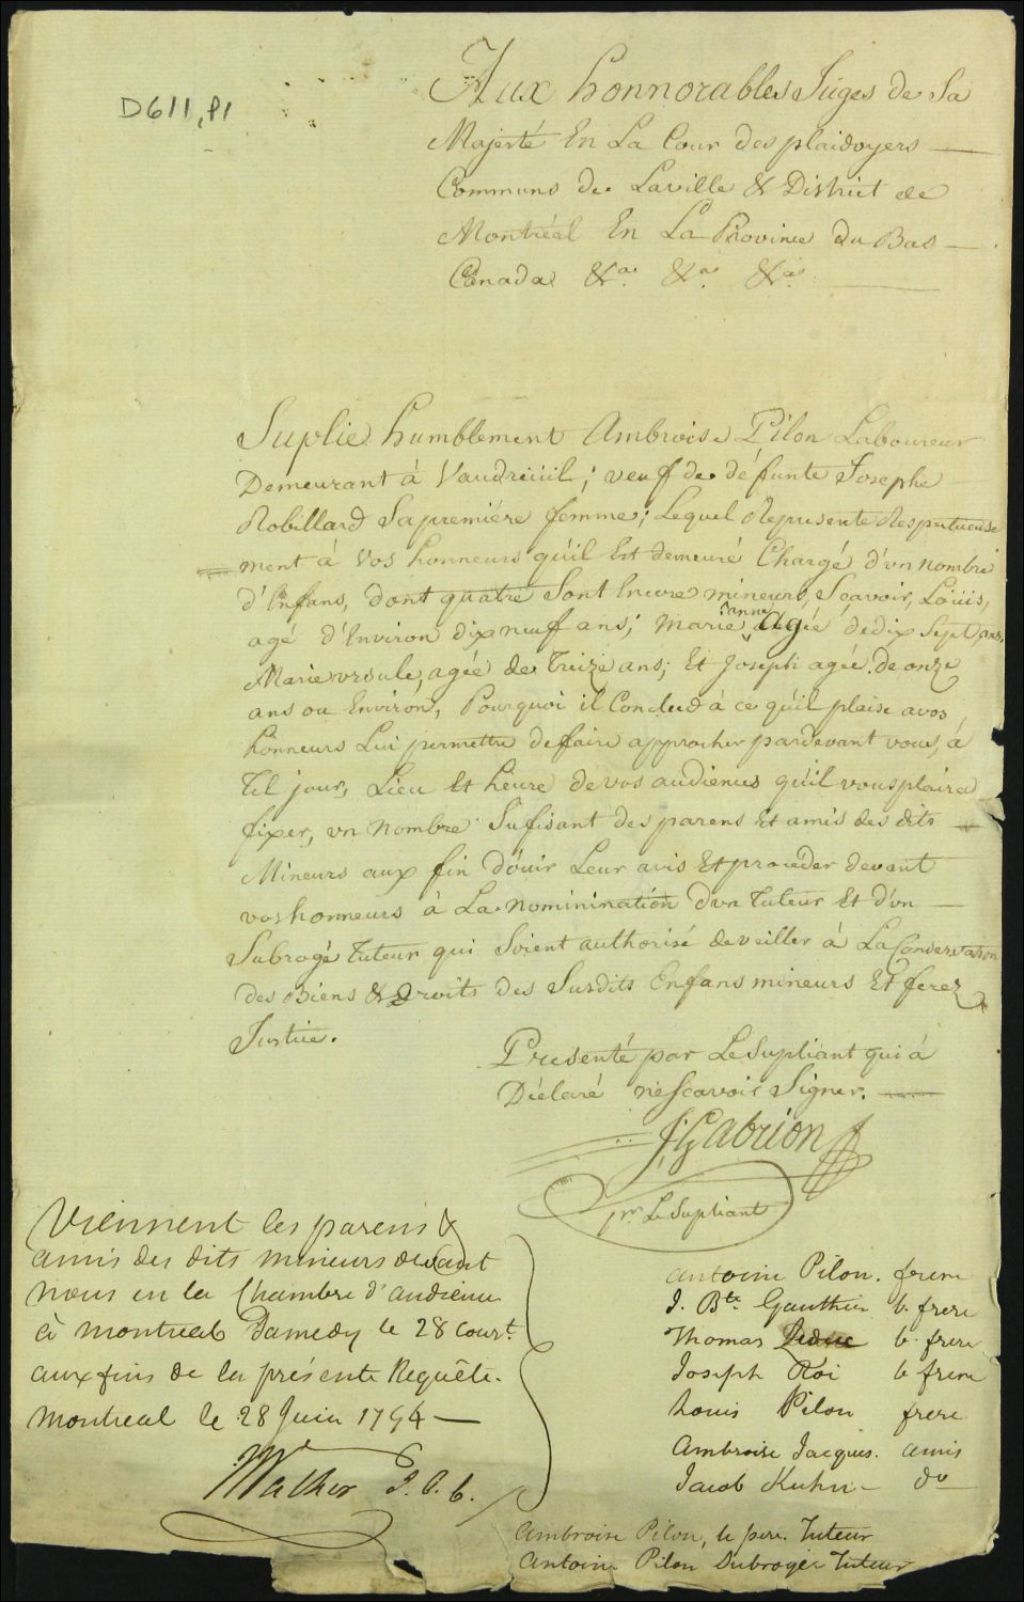 D611, P1
Aux honnorables Juges de Sa
Majesté En La Cour des plaidoyers
Communs de Laville & District de
Montréal En La Province du Bas
Canada &a. &a. &a.
Suplie humblement Ambroise Pilon Laboureur
Demeurant à Vaudreüil; veuf de défunte Josephe
Robillard Sapremiére femme; Lequel Represente Respectueuse
ment à Vos honneurs qu'il Est demeuré Chargé d'un nombre
d'Enfans, dont quatre Sont Encore mineurs, Sçavoir, Loüis,
agé d'Environ dix neuf ans; Marie anne Agée dedix Sept ans,
Marie ursule, agée de Treize ans; Et Joseph agée de onze
ans ou Environ, Pourquoi il Conclud à ce qu'il plaise avos
honneurs Lui permettre defaire approcher pardevant vous, à
Tel jour, Lieu Et heure de vos audiences qu'il vousplaira
fixer, un Nombre Sufisant des parens Et amis des dits
Mineurs aux fin D'ouir Leur avis Et proceder devant
vos honneurs à La Nominination D'un Tuteur Et d'un
Subrogé Tuteur qui Soient authorisé deveiller à La Conservation
des Biens & Droits des Susdits Enfans mineurs Et ferez
Justice.
Presenté par LeSupliant qui à
Déclaré neScavoir Signer.
J. Gabrion
pr. LeSupliant
Viennent les parens &
amis des dits mineurs devant
nous en la Chambre d'audience
à Montreal Samedy le 28 Court.
aux fins de la présente Requête.
Montreal le 28 Juin 1794
Walker J.C.C.
Antoine Pilon. frere
J. Bte. Gauthier b. frere
Thomas Leduc b. frere
Joseph Roi b frere
Louis Pilon frere
Ambroise Jacques. amis
Jacob Kuhn do
Ambroise Pilon, le pere. Tuteur
Antoine Pilon Subrogée Tuteur